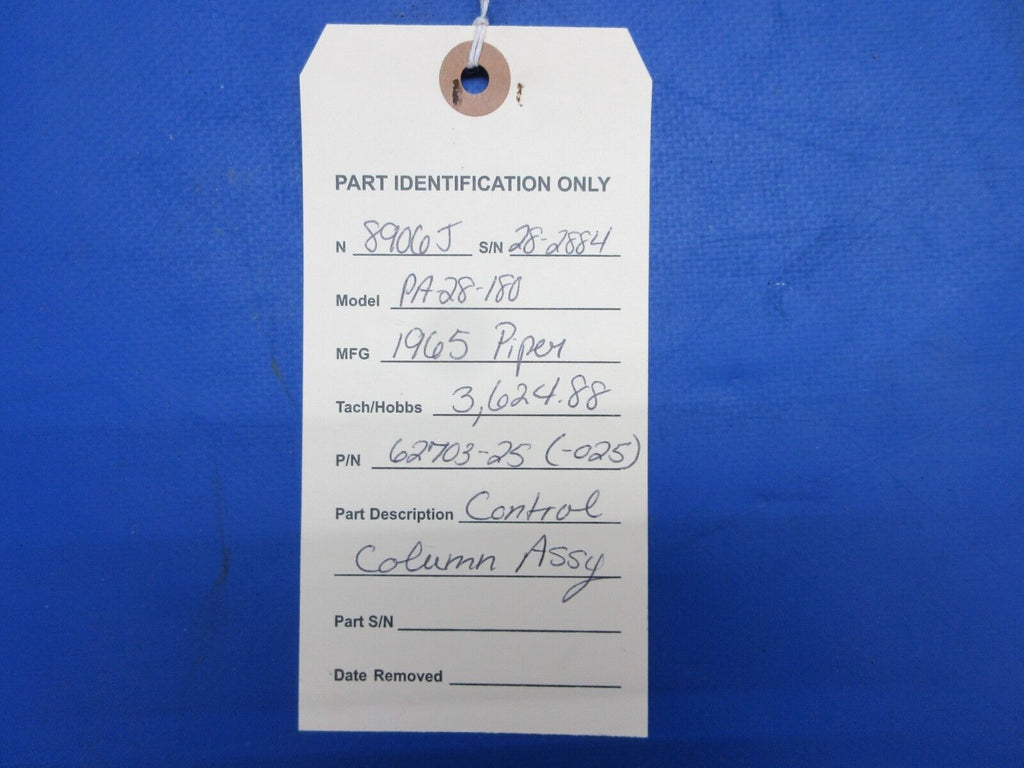 PART IDENTIFICATION ONLY
N 8906J S/N 28-2884
Model PA-28-180
MFG 1965 Piper
Tach/Hobbs 3,624.88
P/N 62703-25 (-025)
Part Description Control
Column Assy
Part S/N
Date Removed